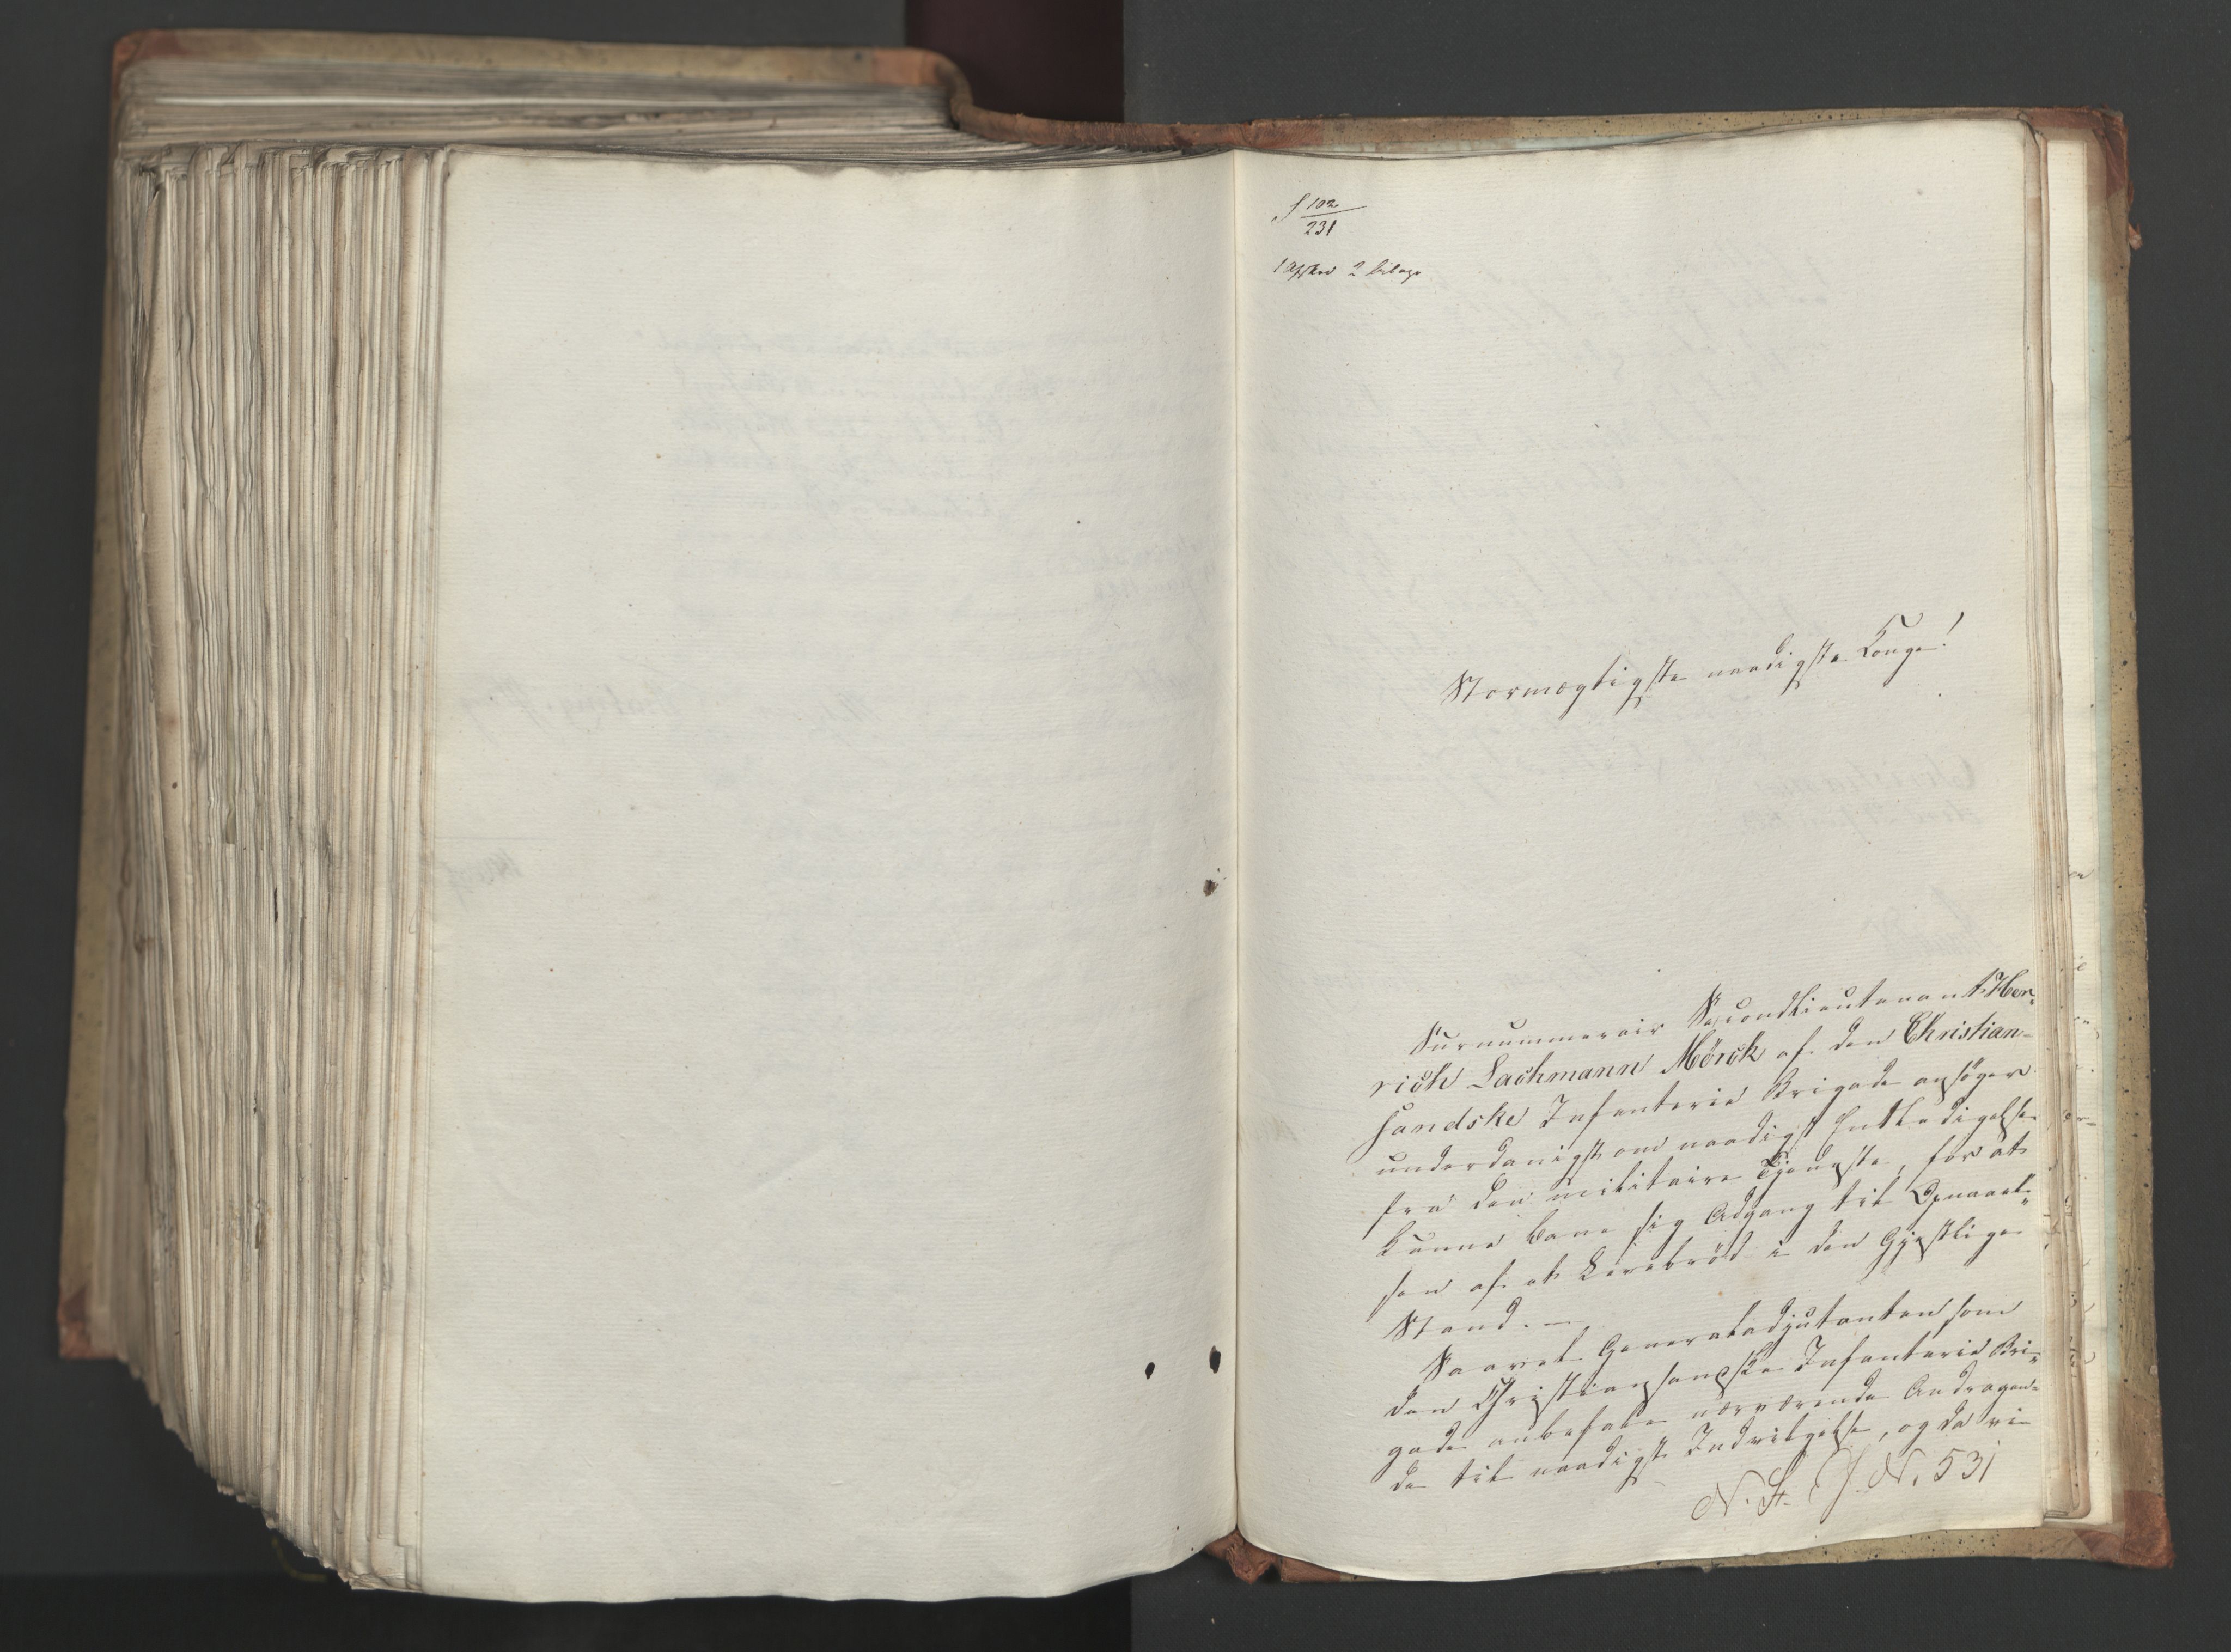 102
231
2 bilage
Stormægtigste naadigste Konge!
Surnummerair Secondlieutenant Hen„
rich Lachmann Mörch af den Christian-
sandske Infanterie Brigade ansöger
underdanigst om naadigst Entledigelse
fra den militaire Tjeneste, for at
kunne bane sig Adgang til
sen af et Levebröd i den Gejstlige
Stand. —
Saavel Generaladjutanten som
den Christiansandske Infanterie Bri„
gade anbefale nærværende Andragen„
de til naadigst Indvilgelse, og da vi
N. St. J. N. 531